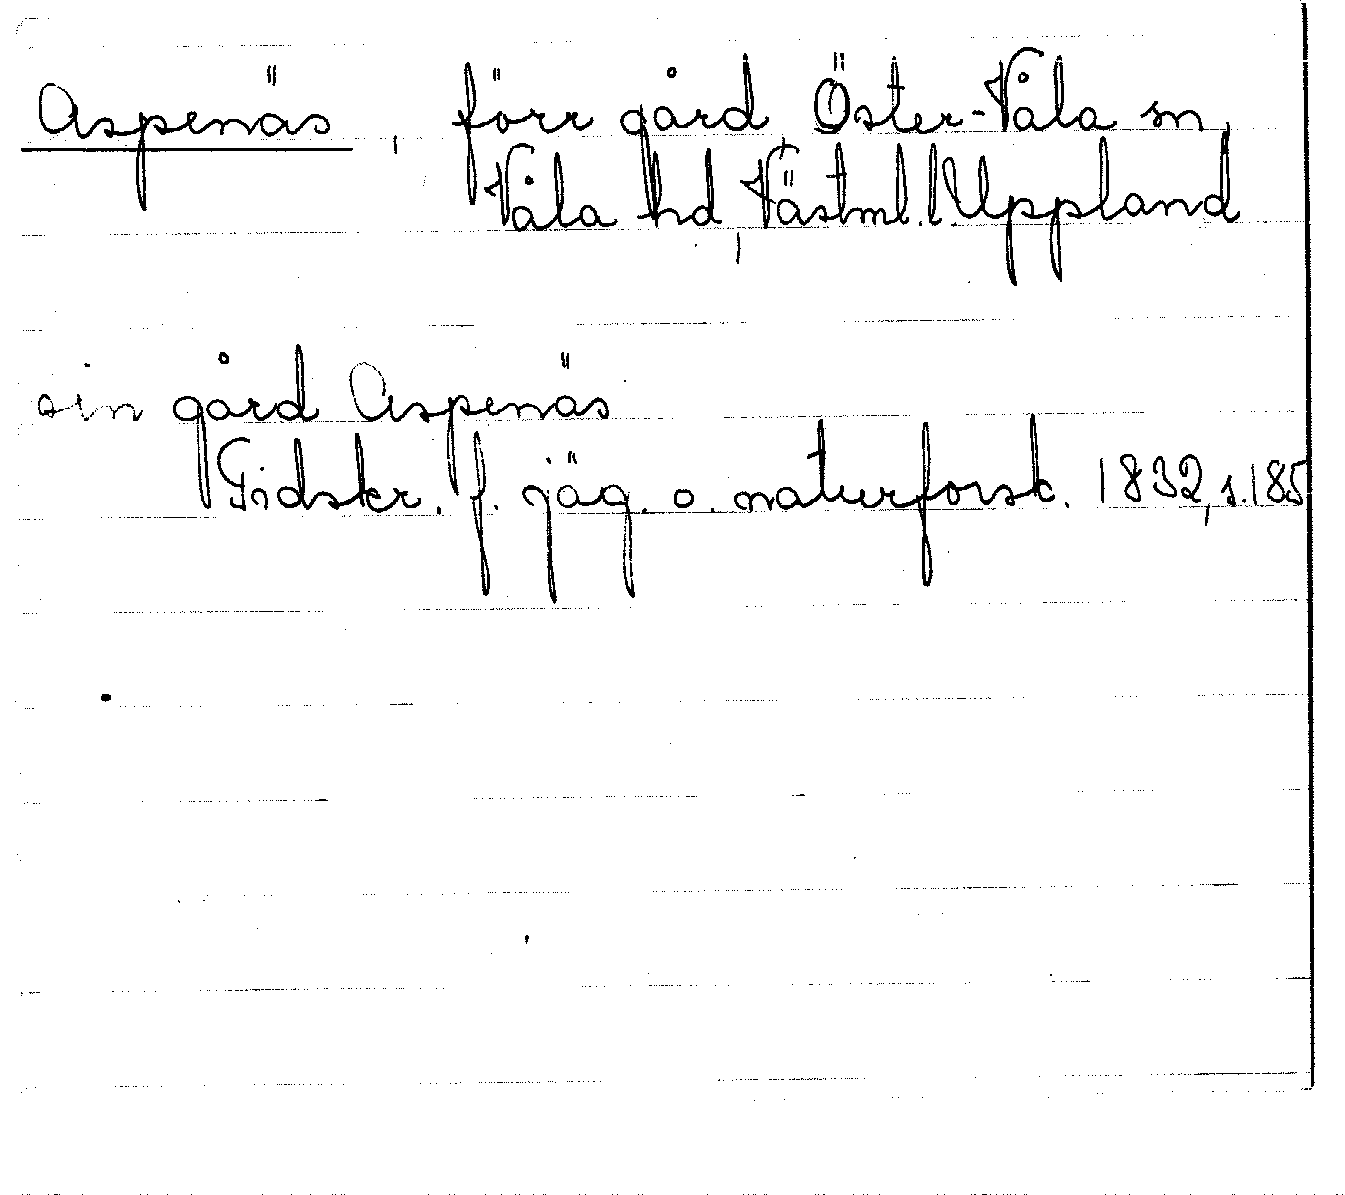 Aspenäs, förr gård, Öster-Våla sn,
Våla hd, Västml. l Uppland
sin gård Aspenäs
Tidskr. f. jäg. o. naturforsk. 1832, s. 185